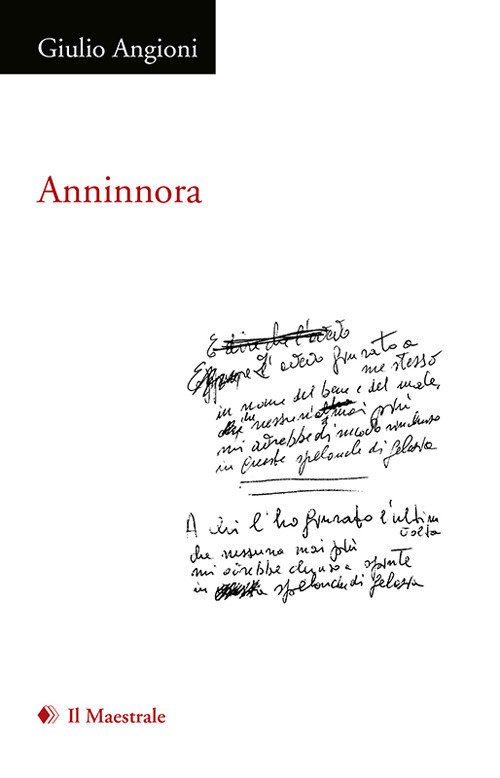 Giulio Angioni
Anninnora
E dire che l'avevo
Eppure l'avevo giurato a
me stesso
in nome del bene e del male,
in
che nessun'altra mai più
mi avrebbe di nuovo rinchiuso
in queste spelonche di gelosia
A chi l'ho giurato l'ultima
volta
che nessuna mai più
mi avrebbe chiuso a spinte
in spelonche di gelosia
Il Maestrale